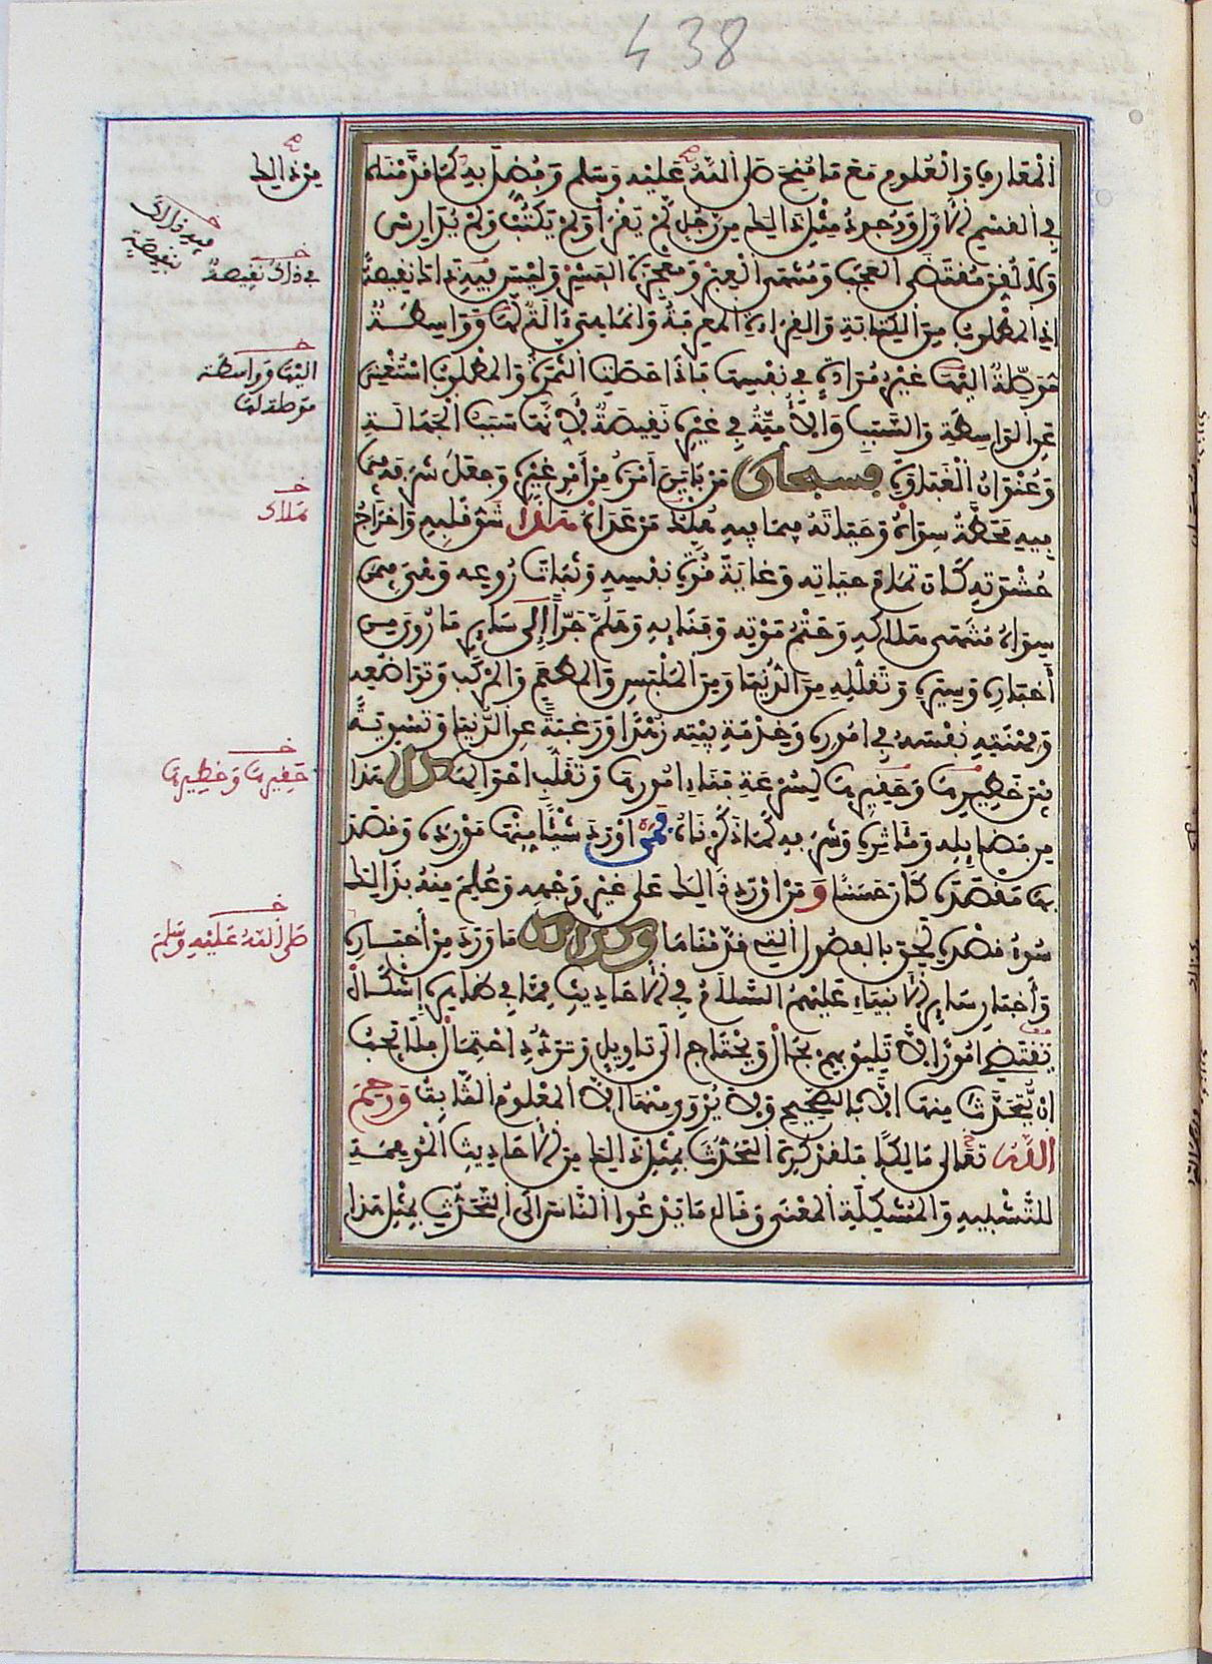 438
المعارف والعلوم مع ما منح صلى الله عليه وسلم وفضل به كما قدمناه
في القسم الأول ووجود مثل ذلك من رجل لم يقرأ ولم يكتب ولم يدارس
ولا لقن مقتضى العجب ومنتهى العبر ومعجزة البشر وليس فيه ذلك نقيصة
إذ المطلوب من الكتابة والقراءة المعرفة وإنما هي آلة لها وواسطة
موصلة إليها غير مرادة في نفسها فإذا حصلت الثمرة والمطلوب استغني
عن الواسطة والسبب والأمية في غيره نقيصة لأنها سبب الجهالة
وعنوان الغباوة فسبحان من باين أمره من أمر غيره وجعل شرفه فيما
فيه محطة سواه وحياته فيما فيه هلاك من عداه هذا شق قلبه وإخراج
حشوته كان تمام حياته وغاية قوة نفسه وثبات روعه وهو فيمن
سواه منتهى هلاكه وحتم موته وفنائه وهلم جرا إلى سائر ما روي من
أخباره وسيره وتقلله من الدنيا ومن الملبس والمطعم والمركب وتواضعه
ومهنته نفسه في أموره وخدمة بيته زهدا ورغبة عن الدنيا وتسوية
بين خطيرها وحقيرها لسرعة فناء أمورها وتقلب أحوالها كل هذا
من فضائله ومآثره وشرفه كما ذكرناه فمن أورد شيئا منها مورده وقصد
بها مقصده كان حسنا ومن أورد ذلك على غير وجهه وعلم منه بذلك
سوء قصده لحق بالفصول التي قدمناها وكذلك ما ورد من أخباره
وأخبار سائر الأنبياء عليهم السلام في الأحاديث مما في ظاهره إشكال
تقتضي أمورا لا تليق بهم بحال وتحتاج إلى تأويل وتردد احتمال فلا يجب
أن يتحدث منها إلا بالصحيح ولا يروى منها إلا المعلوم الثابت ورحم
الله تعالى مالكا فلقد كره التحدث بمثل ذلك من الأحاديث الموهمة
للتشبيه والمشكلة المعنى وقال ما يدعو الناس إلى التحدث بمثل هذا
من ذلك
فيه ذلك
بنقيصة
في ذلك نقيصة
إليها وواسطة
موصلة لها
هلاك
حقيرها وخطيرها
صلى الله عليه وسلم